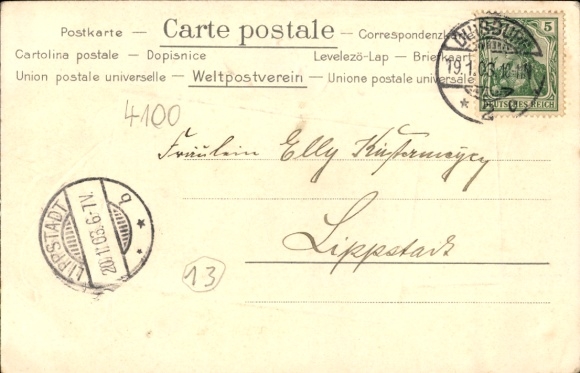 Postkarte — Carte postale — Correspondenzka
Cartolina postale — Dopisnice Levelező-Lap — Briefkaart
Union postale universelle — Weltpostverein — Unione postale universale
5
DEUTSCHES REICH
DUISBURG
19.1.03.
* 2
4100
Fräulein Elly
Lippstadt
LIPPSTADT
20.1.03.6-7V.
* b *
13